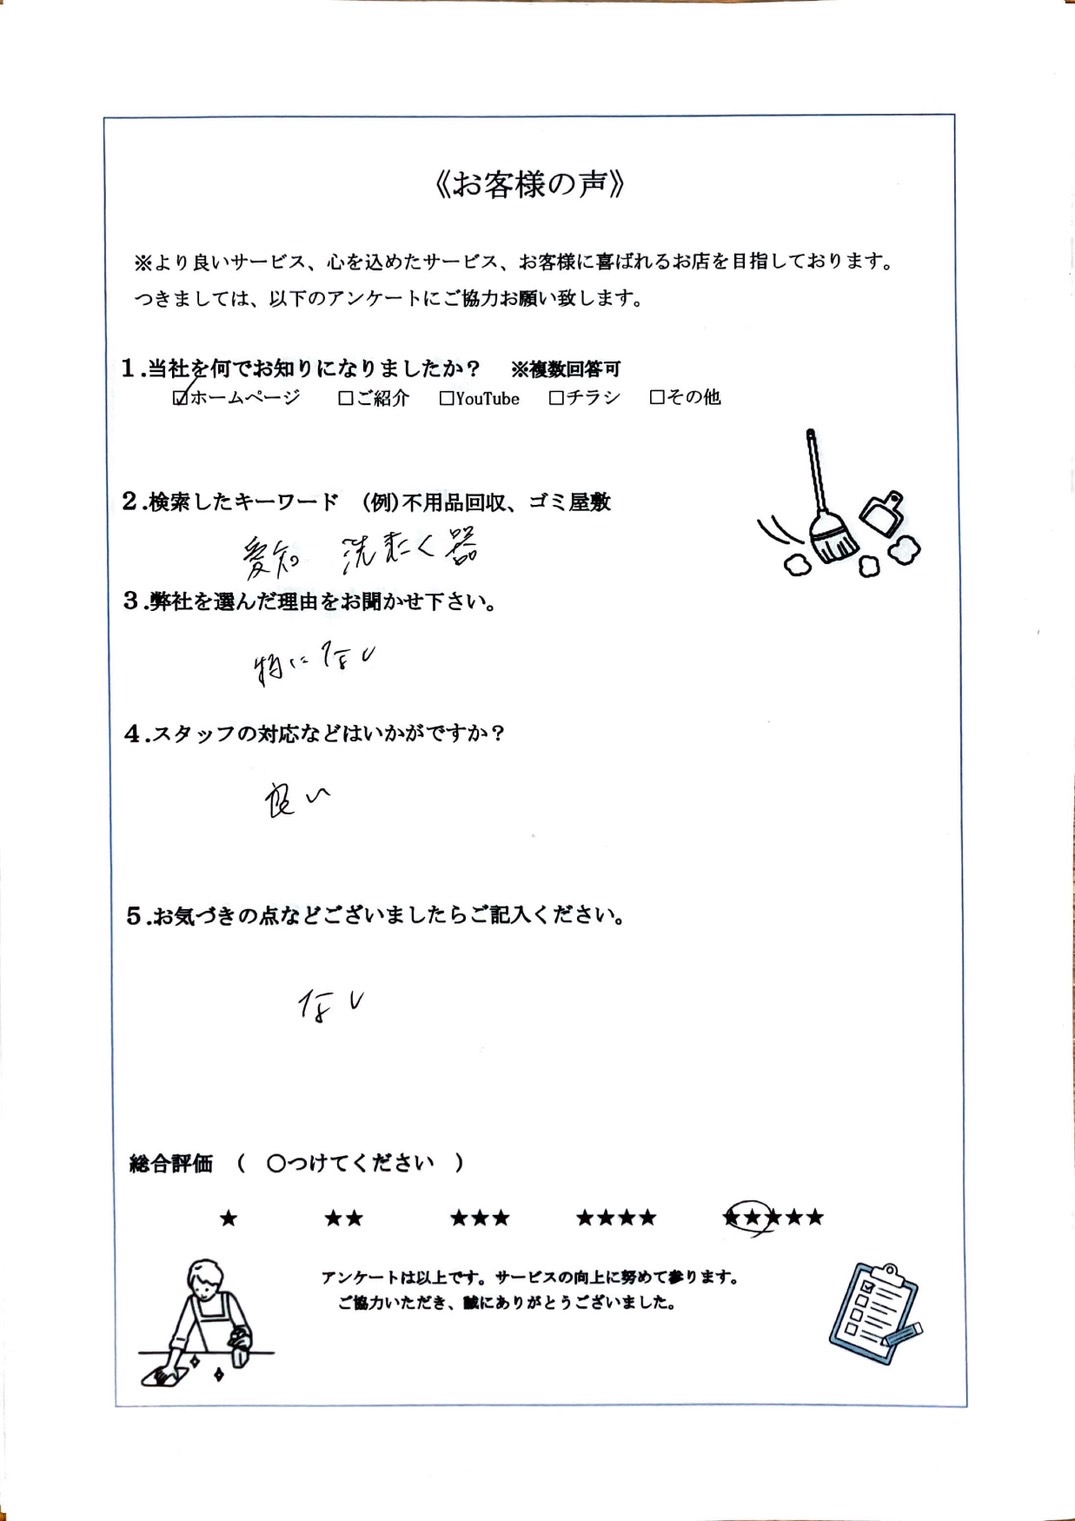 《お客様の声》
※より良いサービス、心を込めたサービス、お客様に喜ばれるお店を目指しております。
つきましては、以下のアンケートにご協力お願い致します。
1.当社を何でお知りになりましたか? ※複数回答可
☑ホームページ □ご紹介 □YouTube □チラシ □その他
2.検索したキーワード (例)不用品回収、ゴミ屋敷
愛知 洗たく器
3.弊社を選んだ理由をお聞かせ下さい。
特になし
4.スタッフの対応などはいかがですか?
良い
5.お気づきの点などございましたらご記入ください。
なし
総合評価 ( ○つけてください )
★ ★★ ★★★ ★★★★ ★★★★★
アンケートは以上です。サービスの向上に努めて参ります。
ご協力いただき、誠にありがとうございました。